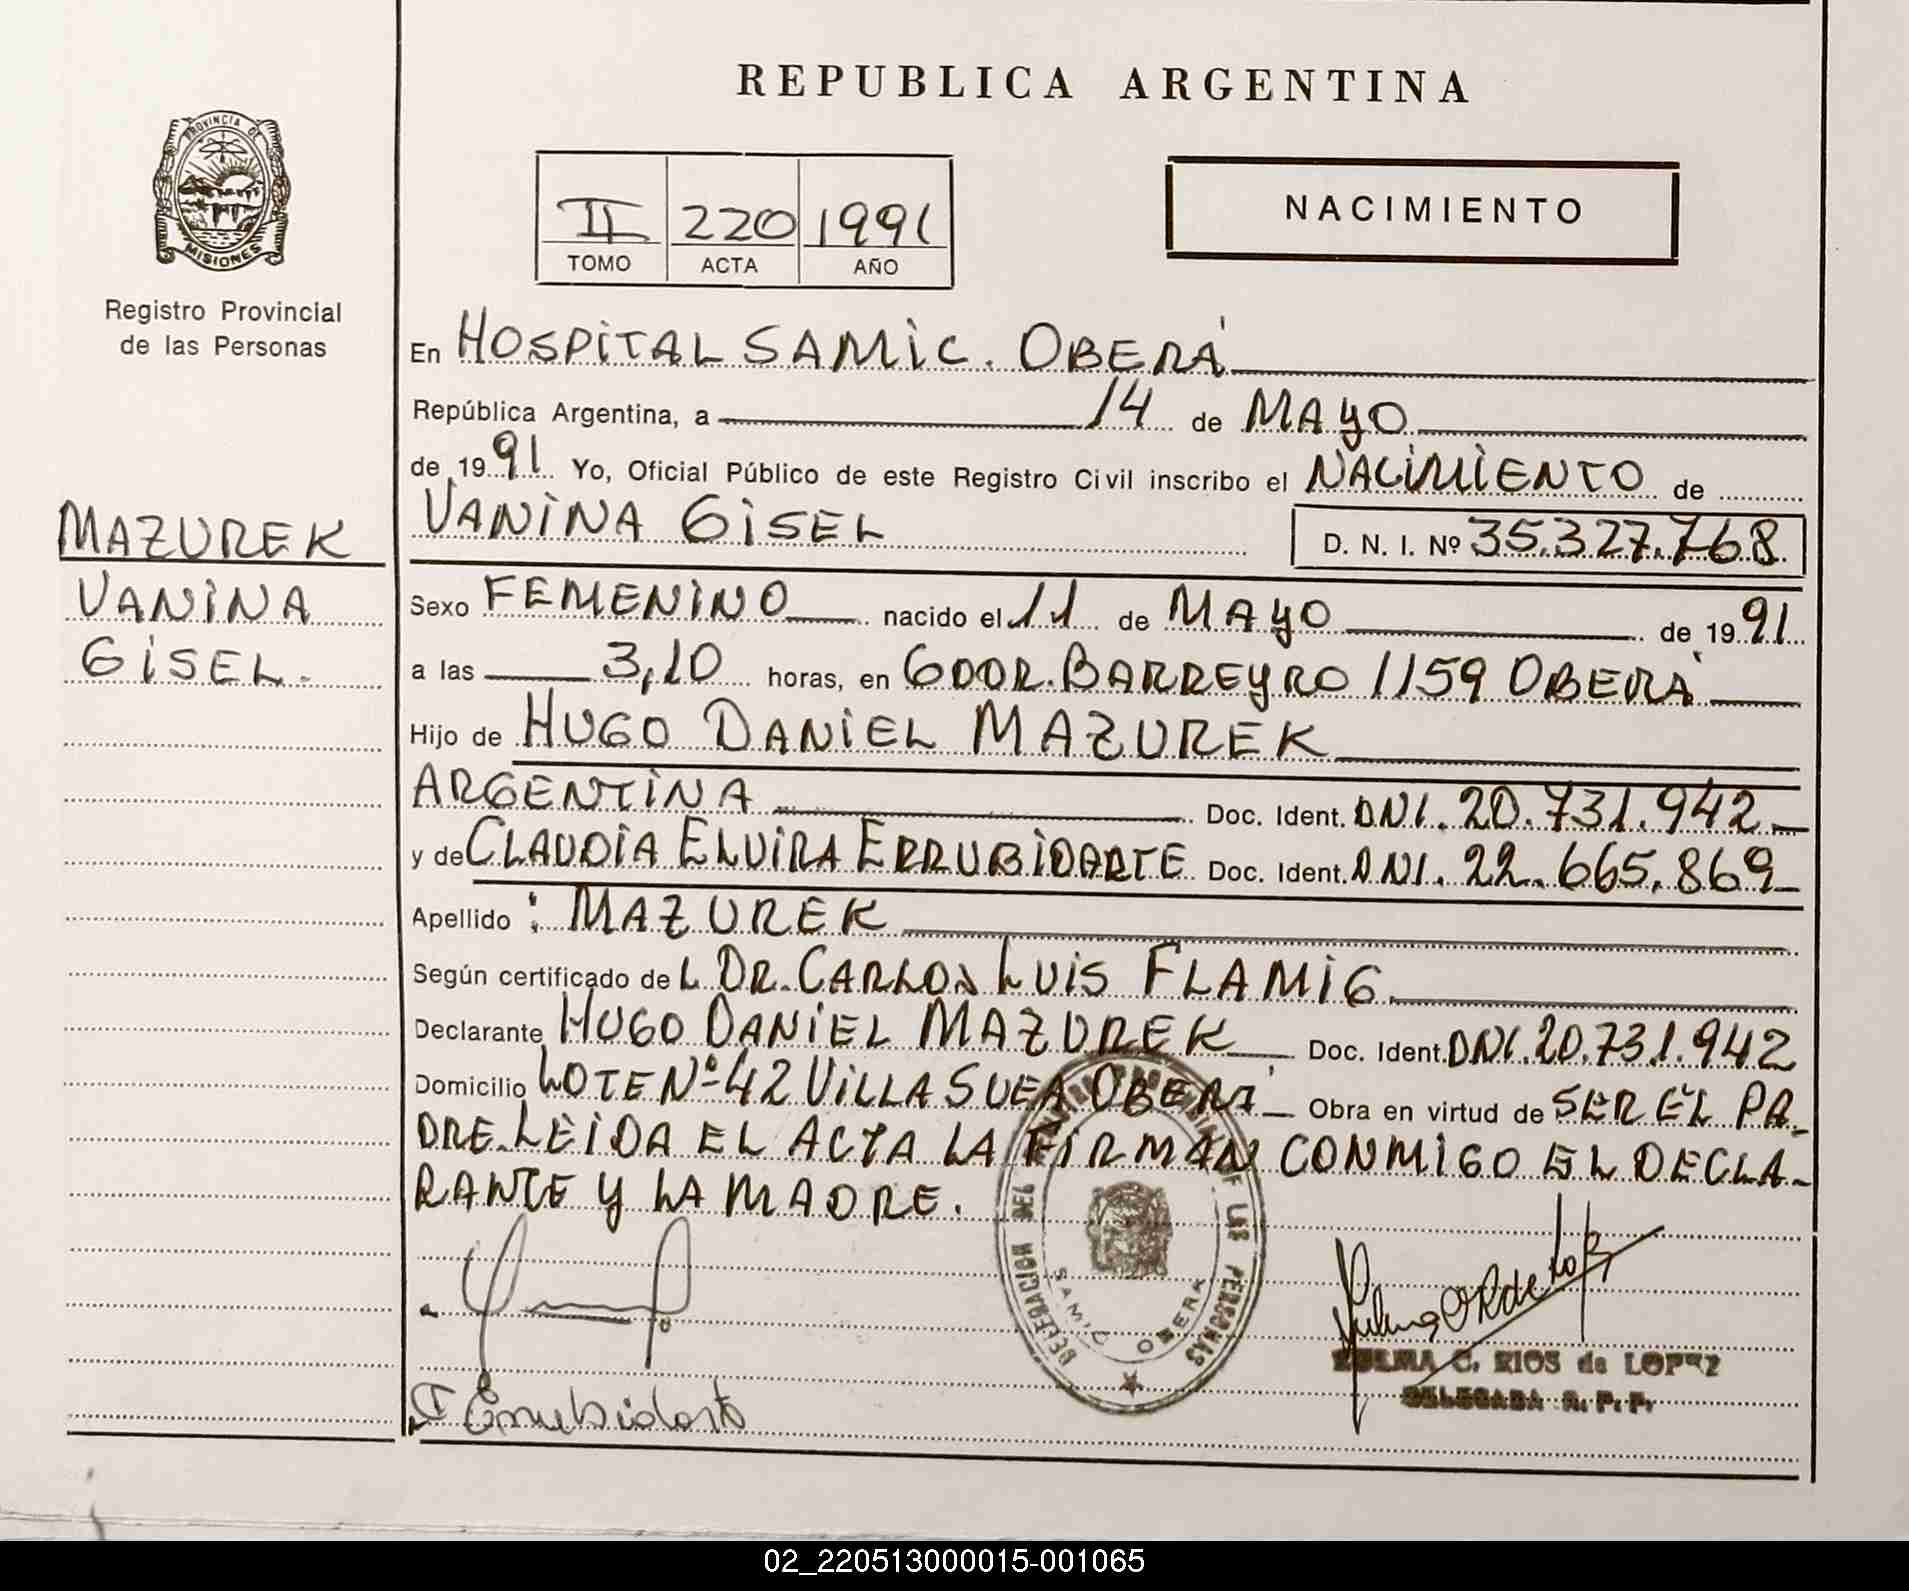 REPUBLICA ARGENTINA
PROVINCIA DE
MISIONES
Registro Provincial
de las Personas
II 220 1991
TOMO ACTA AÑO
NACIMIENTO
MAZUREK
VANINA
GISEL.
En HOSPITAL SAMIC. OBERÁ
República Argentina, a 14 de MAYO
de 1991 Yo, Oficial Público de este Registro Civil inscribo el NACIMIENTO de
VANINA GISEL D. N. I. Nº 35.327.768
Sexo FEMENINO nacido el 11 de MAYO de 1991
a las 3,10 horas, en GDOR. BARREYRO 1159 OBERÁ
Hijo de HUGO DANIEL MAZUREK
ARGENTINA Doc. Ident. DNI. 20.731.942
y de CLAUDIA ELVIRA ERRUBIDARTE Doc. Ident. DNI. 22.665.869
Apellido : MAZUREK
Según certificado de L DR. CARLOS LUIS FLAMIG
Declarante HUGO DANIEL MAZUREK Doc. Ident. DNI. 20.731.942
Domicilio LOTE Nº 42 VILLA SUEA OBERÁ Obra en virtud de SER EL PA-
DRE. LEIDA EL ACTA LA FIRMAN CONMIGO EL DECLA-
RANTE Y LA MADRE.
DELEGACION DEL REGISTRO PROVINCIAL DE LAS PERSONAS
SAMIC OBERA
ZULMA C. RIOS de LOPEZ
DELEGADA R. P. P.
02_220513000015-001065